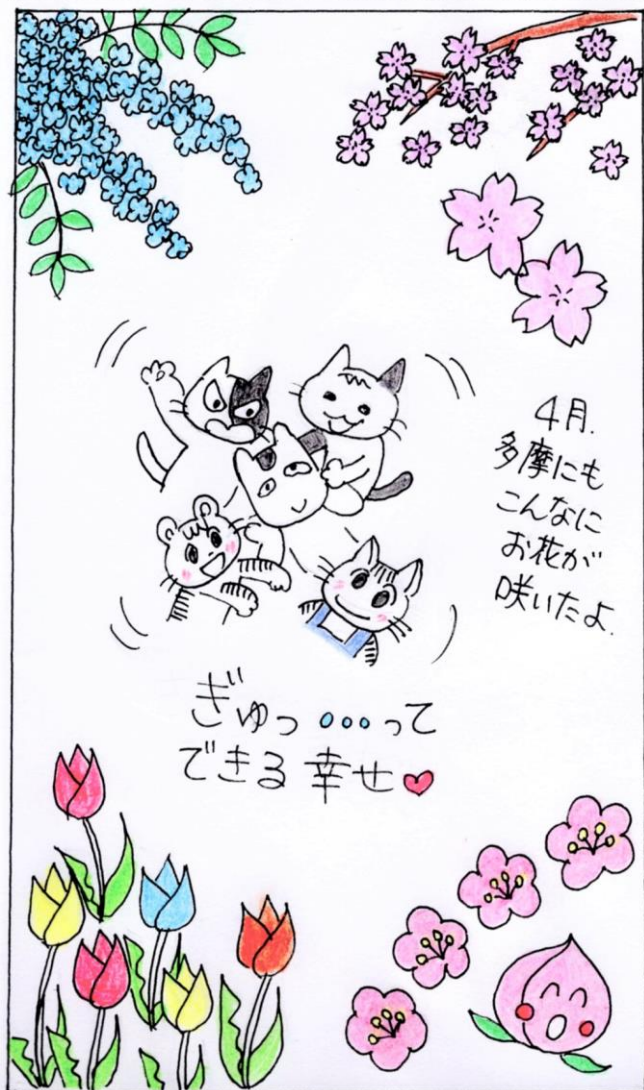 4月.
多摩にも
こんなに
お花が
咲いたよ.
ぎゅっ...って
できる 幸せ